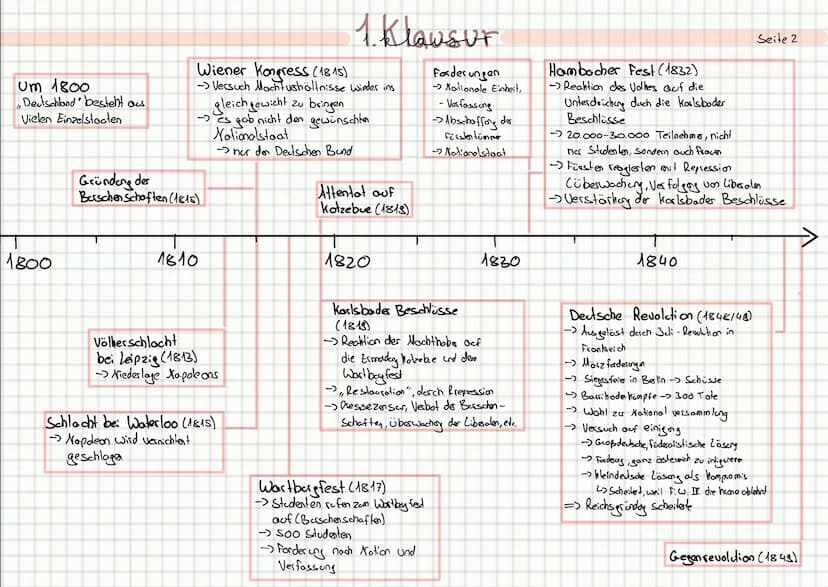 1. Klausur
Seite 2
Um 1800
"Deutschland" besteht aus
vielen Einzelstaaten
Wiener Kongress (1815)
→ Versuch Machtverhältnisse wieder ins
gleichgewicht zu bringen
→ es gab nicht den gewünschten
Nationalstaat
→ nur den Deutschen Bund
Forderungen
→ Nationale Einheit,
- Verfassung
→ Abschaffung der
Fürstentümer
→ Nationalstaat
Hambacher Fest (1832)
→ Reaktion des Volkes auf die
Unterdrückung durch die Karlsbader
Beschlüsse
→ 20.000-30.000 Teilnehmer, nicht
nur Studenten, sondern auch Frauen
→ Fürsten reagierten mit Repression
(Überwachung, Verfolgung von Liberalen
→ Verstärkung der Karlsbader Beschlüsse
Gründung der
Burschenschaften (1815)
Attentat auf
Kotzebue (1819)
1800
1810
1820
1830
1840
Völkerschlacht
bei Leipzig (1813)
→ Niederlage Napoleons
Schlacht bei Waterloo (1815)
→ Napoleon wird vernichtend
geschlagen
Wartburgfest (1817)
→ Studenten rufen zum Wartburgfest
auf (Burschenschaften)
→ 500 Studenten
→ Forderung nach Nation und
Verfassung
Karlsbader Beschlüsse
(1819)
→ Reaktion der Machthaber auf
die Ermordung Kotzebue und dem
Wartburgfest
→ "Restauration", durch Repression
→ Pressezensur, Verbot der Burschen-
schaften, Überwachung der Liberalen, etc.
Deutsche Revolution (1848/49)
→ Ausgelöst durch Juli-Revolution in
Frankreich
→ Märzforderungen
→ Siegesfeier in Berlin → Schüsse
→ Barrikadenkämpfe → 300 Tote
→ Wahl zur Nationalversammlung
→ Versuch auf einigung
→ Großdeutsche, föderalistische Lösung
→ ganz Österreich zu integrieren
→ Kleindeutsche Lösung als Kompromis
↳ Scheitert, weil F.W. die Krone ablehnt
⇒ Reichsgründung scheitert
Gegenrevolution (1849)